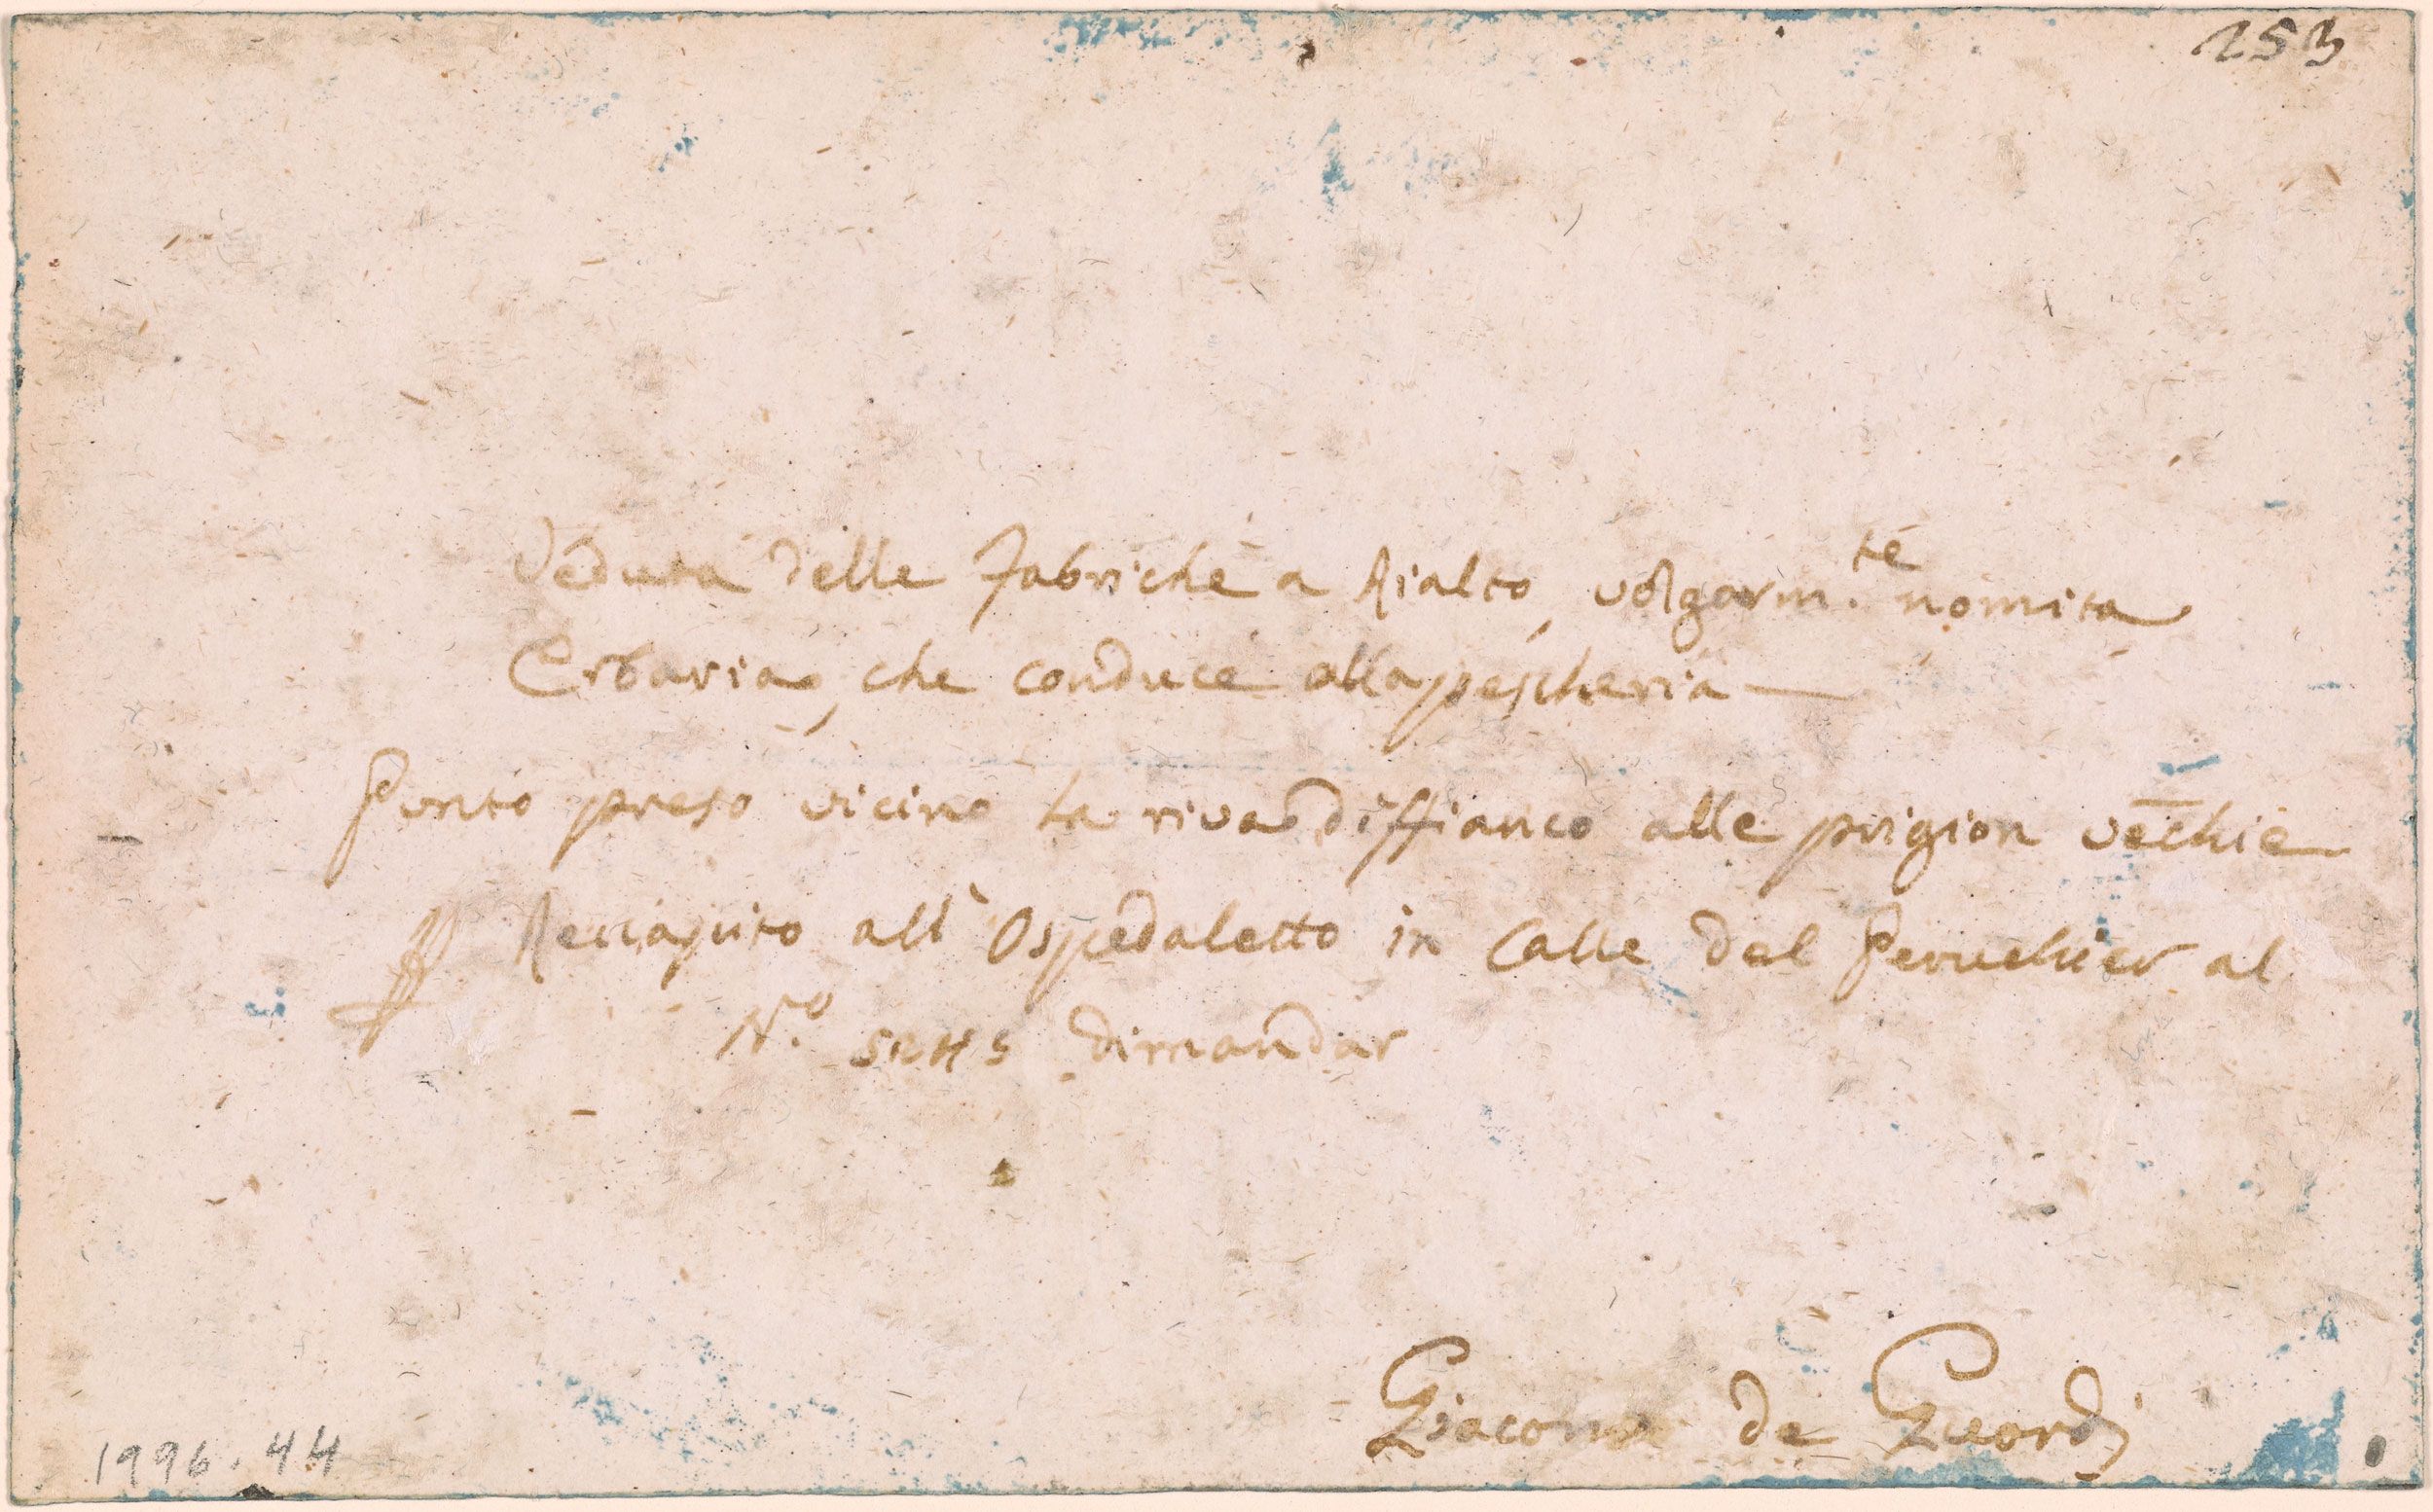 253
Veduta delle Fabriche a Rialto, volgarm.te nomita
Erbaria, che conduce alla pescheria —
Punto preso vicino la riva diffianco alle prigion vecchie
Reccapito all' Ospedaletto in Calle del Peruchier al
N.o dimandar
Giacomo de Guardi
1996.44